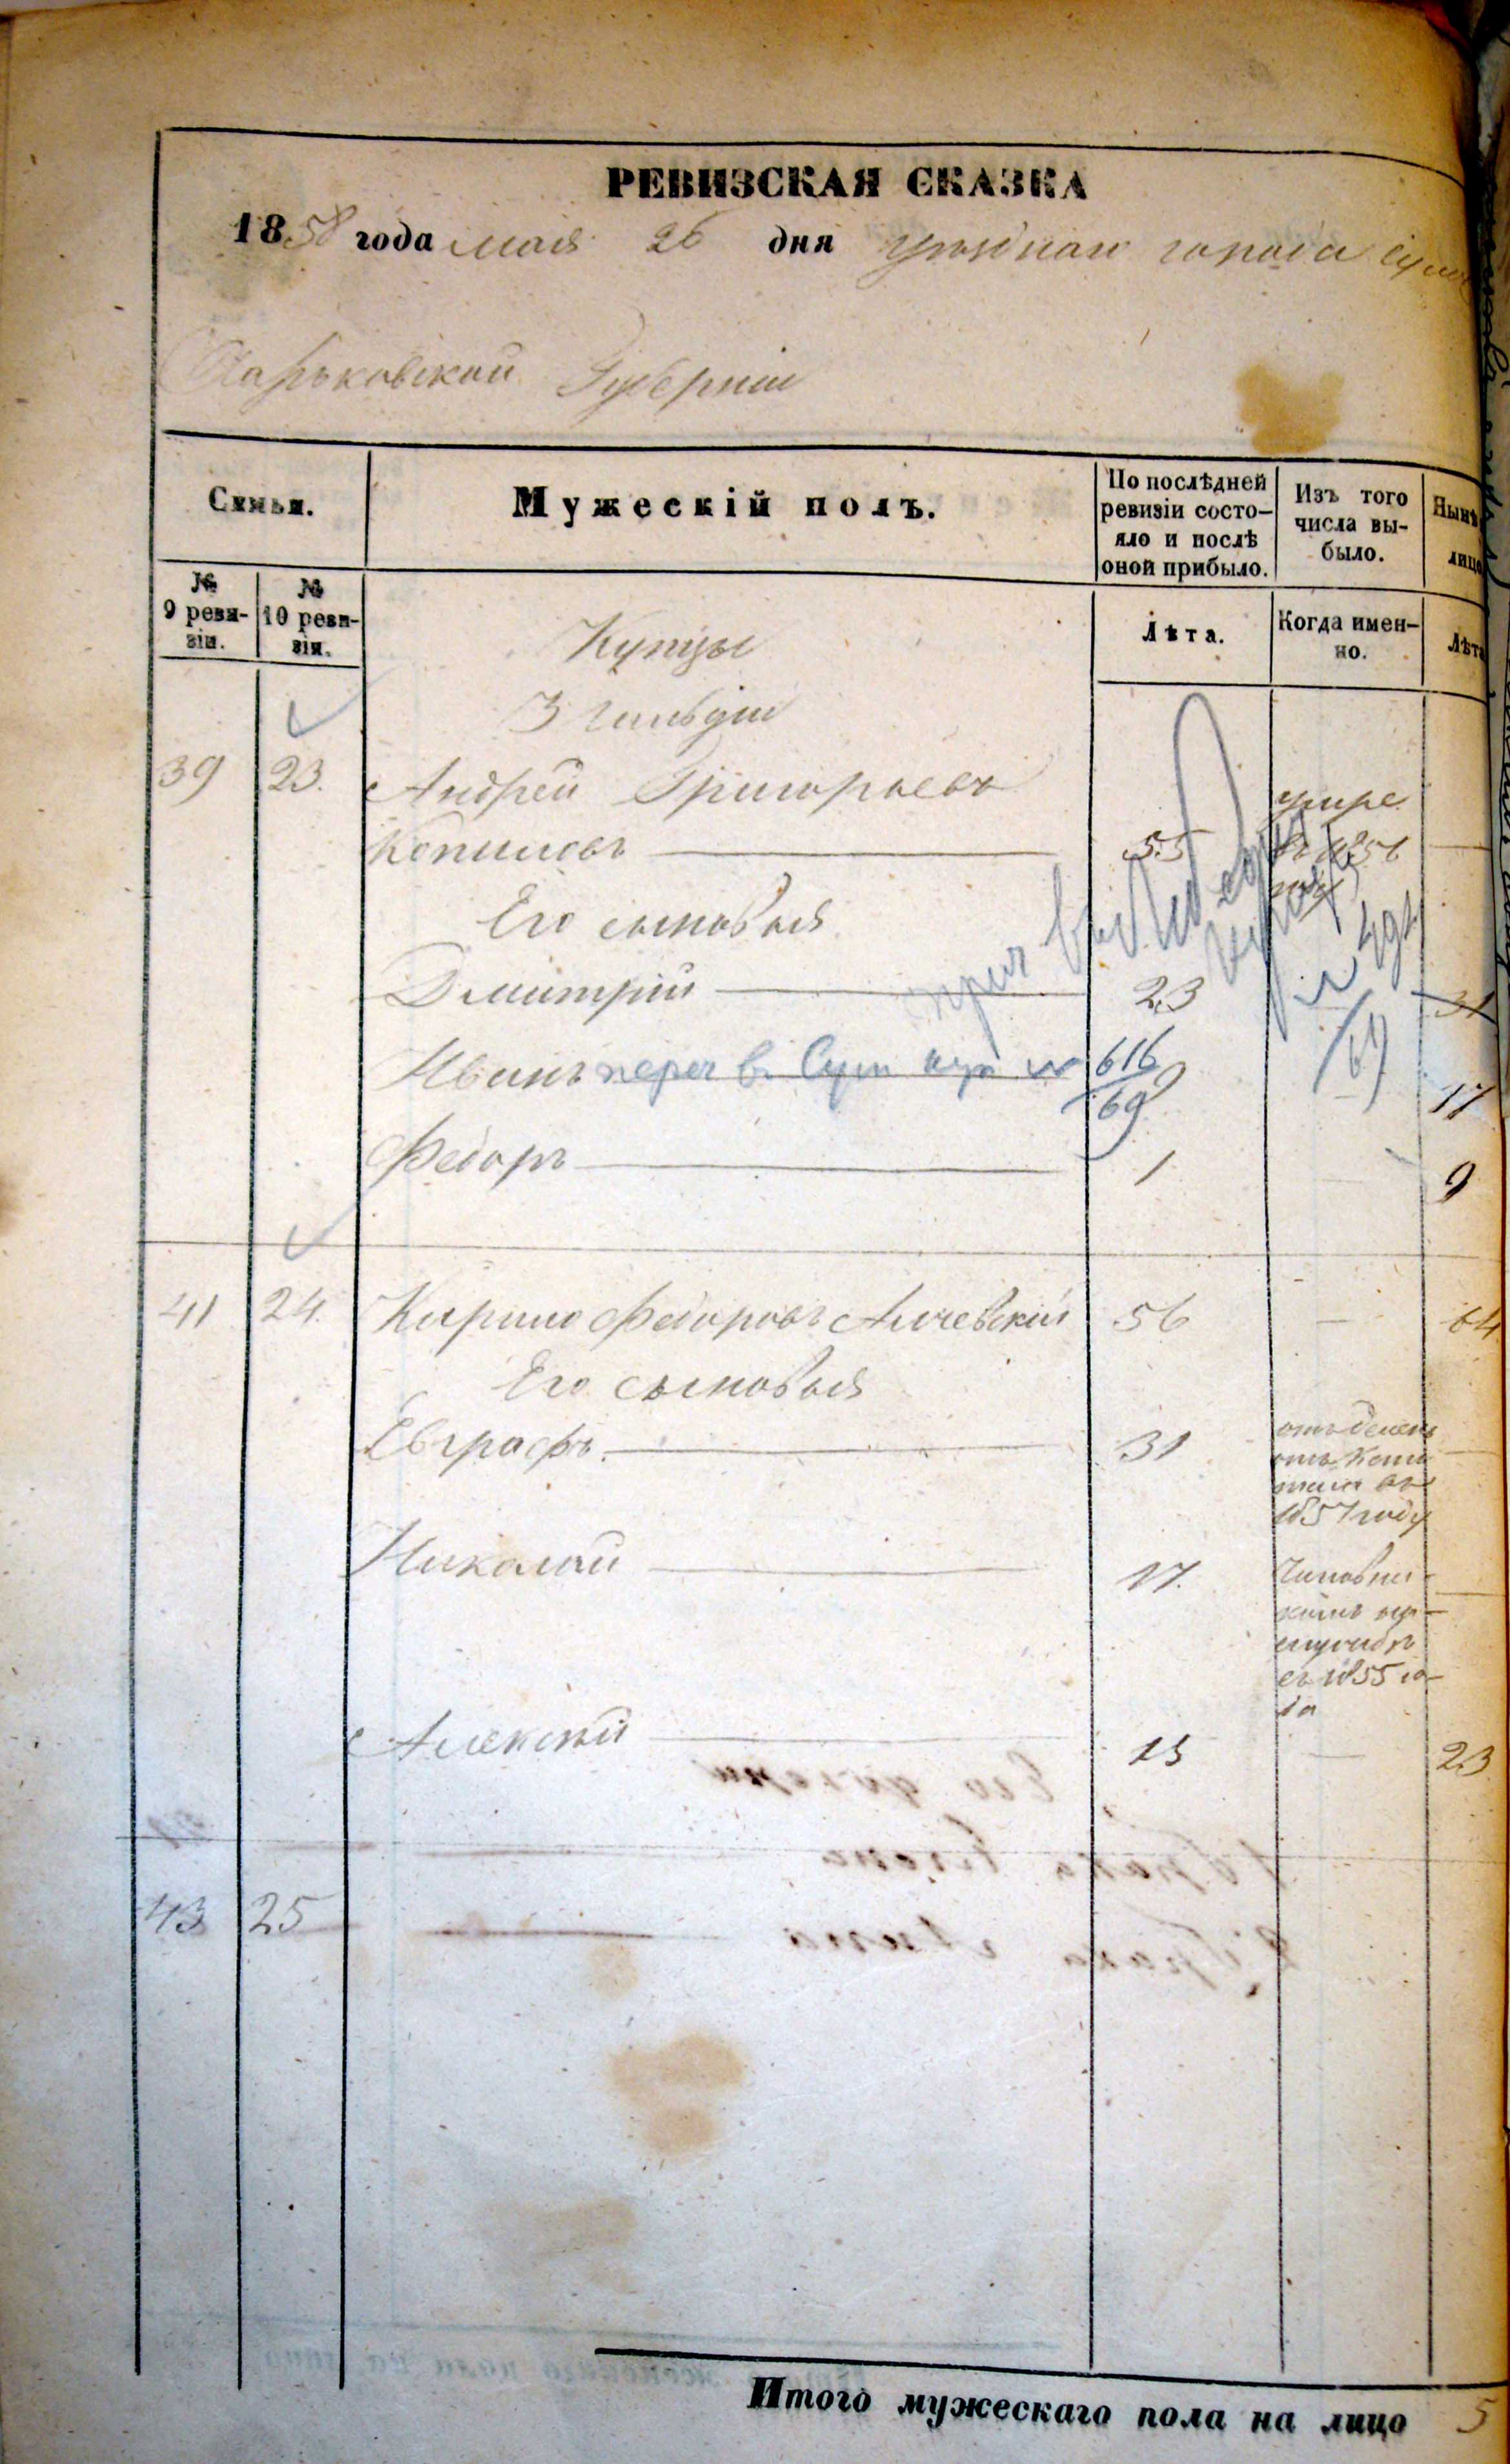 РЕВИЗСКАЯ СКАЗКА
1858 года мая 26 дня уезднаго города Сумъ
Харьковской Губернии
Семьи.
Мужескій полъ.
По послѣдней ревизіи состо-
яло и послѣ
оной прибыло.
Изъ того
числа вы-
было.
Нынѣ
лицо
№
9 реви-
зіи.
№
10 реви-
зіи.
Лѣта.
Когда имен-
но.
Лѣта
Купцы
3 гильдіи
39 23. Андрей Григорьевъ
Копиловъ 55 умре
въ 1856
году
Его сыновья
Дмитрій 23 31
Иванъ переч въ Сум куп № 616/69 9 17
Федоръ 1 9
41 24 Кирило Федоровъ Алчевскій 56 — 64
Его сыновья
Евграфъ 31 отделенъ
отъ капи
тала въ
1857 году
Николай 17. Чиновни-
комъ
съ 1855 го-
да
Алексѣй 15 — 23
43 25
Итого мужескаго пола на лицо 5